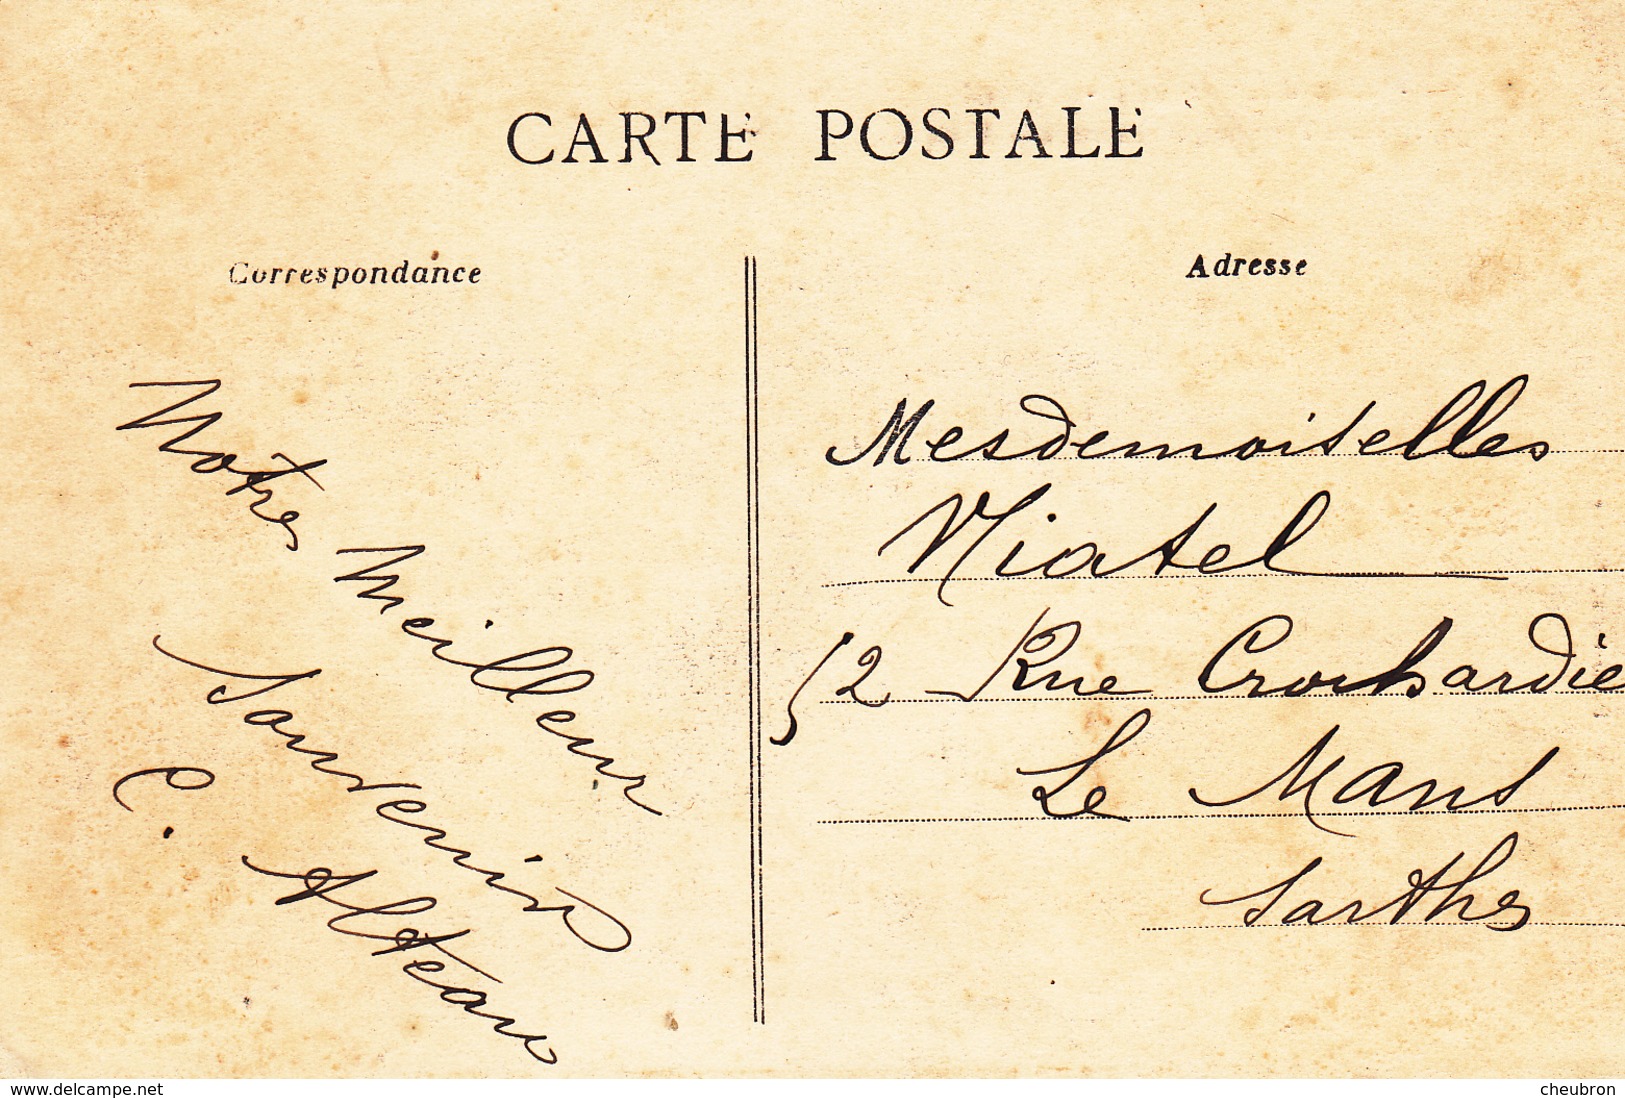 CARTE POSTALE
Correspondance
Notre meilleur
Souvenir
C. Alteau
Adresse
Mesdemoiselles
Viatel
52 Rue Crochardie
Le Mans
Sarthe
www.delcampe.net
cheubron